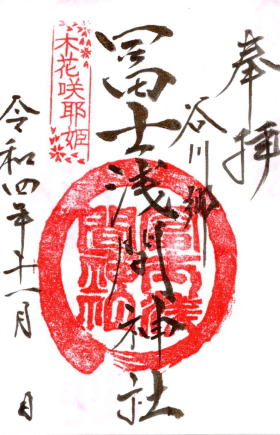 奉拝
谷川郷
冨士浅間神社
木花咲耶姫
令和四年十一月 日